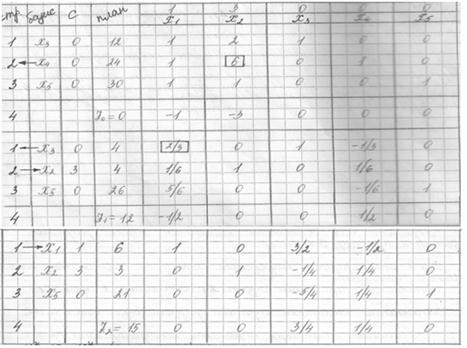 стр. базис C план 1 3 0 0 0
x1 x2 x3 x4 x5
1 x3 0 12 1 2 1 0 0
2 x4 0 24 1 6 0 1 0
3 x5 0 30 1 1 0 0 1
4 Z0=0 -1 -3 0 0 0
1 x3 0 4 2/3 0 1 -1/3 0
2 x2 3 4 1/6 1 0 1/6 0
3 x5 0 26 5/6 0 0 -1/6 1
4 Z1=12 -1/2 0 0 1/2 0
1 x1 1 6 1 0 3/2 -1/2 0
2 x2 3 3 0 1 -1/4 1/4 0
3 x5 0 21 0 0 -5/4 1/4 1
4 Z2=15 0 0 3/4 1/4 0